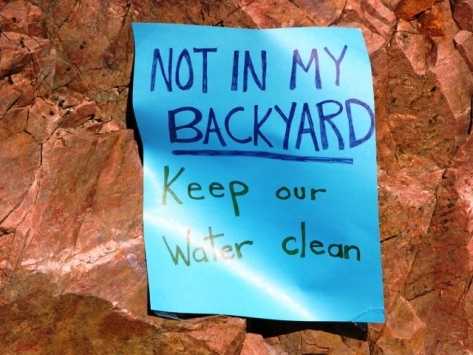 NOT IN MY
BACKYARD
Keep our
Water clean